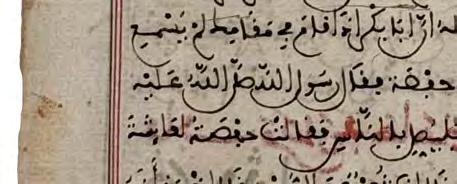 له ان ابا بكر اذا قام في مقامك لم يسمع
حفصة فقال رسول الله صلى الله عليه
فليصل بالناس فقالت حفصة لعائشة